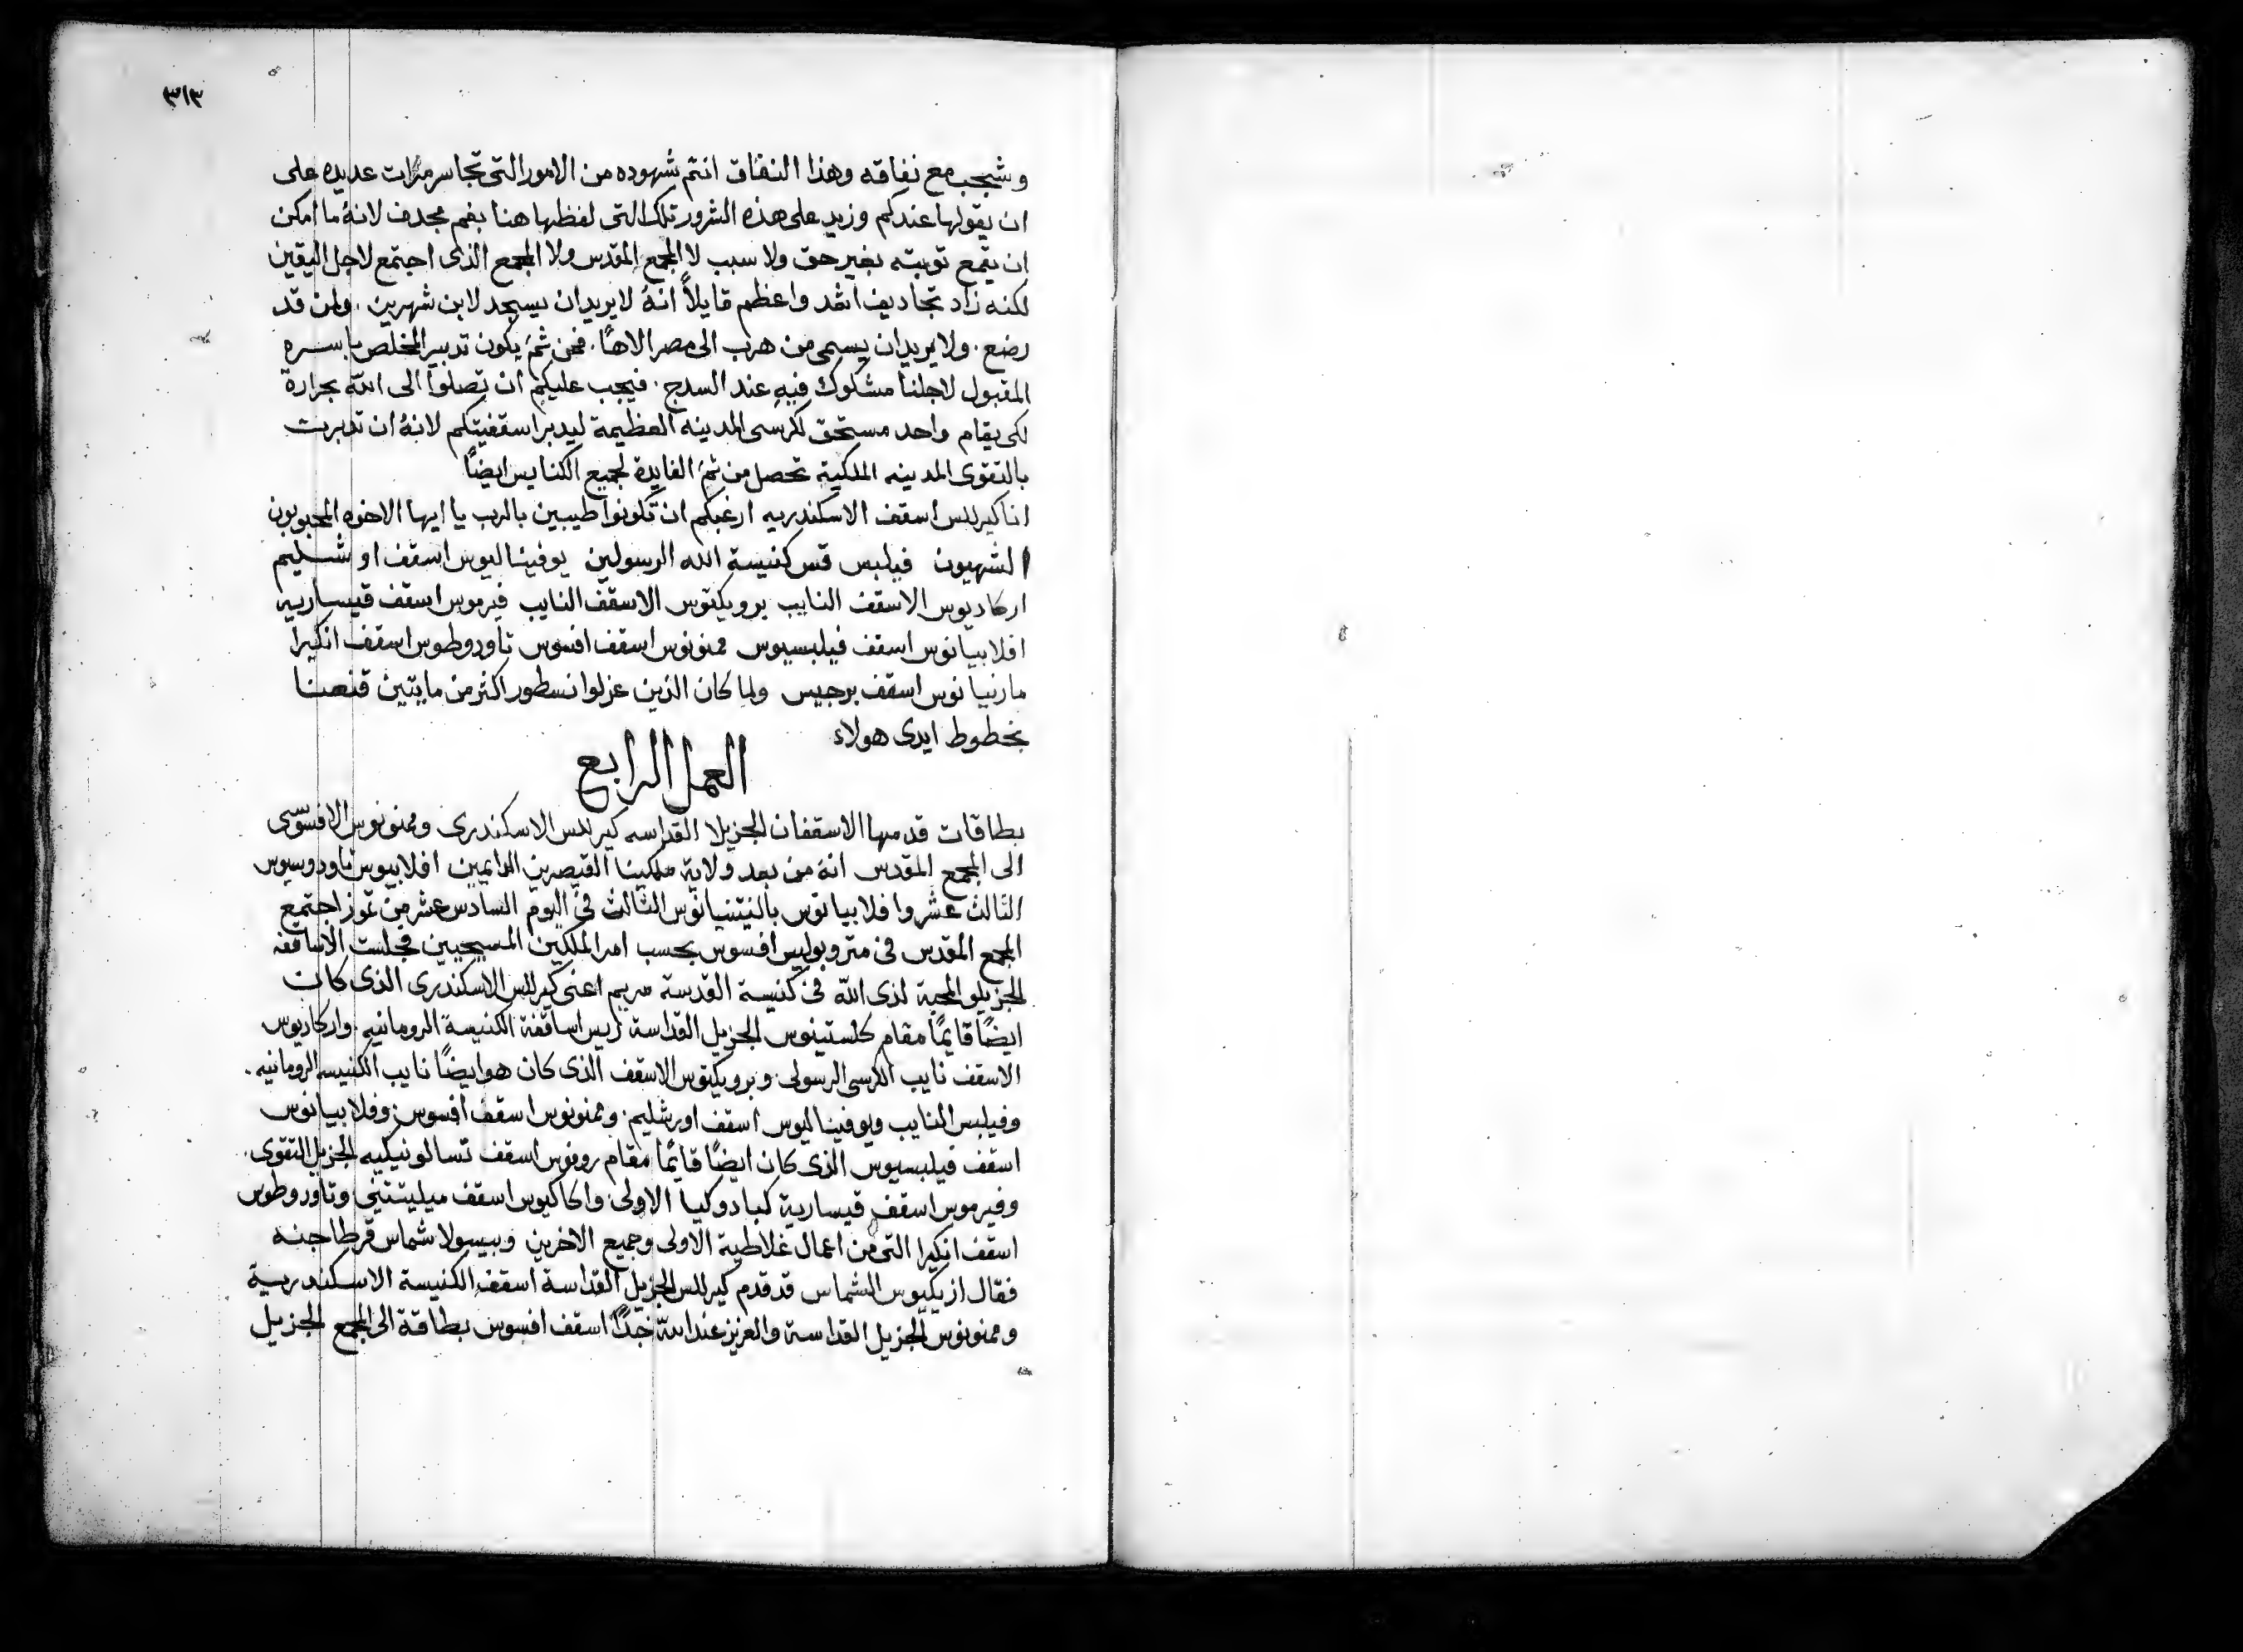 ٣١٣
وشجب مع نفاقه وهذا النفاق انتم شهوده من الامور التى تجاسر مرّات عديده على
ان يقولها عندكم وزيد على هذه الشرور تلك التى لفظها هنا بفم مجدف لانهُ ما امكن
ان يقمع توبته بغير حق ولا سبب لا المجمع المقدس ولا المجمع الذى اجتمع لاجل اليقين
لكنه زاد تجاديف اشد واعظم قايلاً انهُ لا يريد ان يسجد لابن شهرين . ولمن قد
رضع . ولا يريد ان يسمى من هرب الى مصر الاهًا . فمن ثمَّ يكون تدبير المخلص باسره
المقبول لاجلنا مشكوك فيهِ عند السدج . فيجب عليكم ان تصلوا الى الله بحرارة
لكى يقام واحد مستحق لكرسى المدينه العظيمة ليدبر اسقفيتكم لانهُ ان تدبرت
بالتقوى المدينه الملكية تحصل من ثمَّ الفايدة لجميع الكنايس ايضًا
انا كيرللس اسقف الاسكندريه ارغبكم ان تكونوا طيبين بالرب يا ايها الاخوه المحبوبون
الشهيون فيلبس قس كنيسة الله الرسولين يوفيناليوس اسقف اوشليم
اركاديوس الاسقف النايب برويكتوس الاسقف النايب فيرموس اسقف قيساريه
افلابيانوس اسقف فيلبسيوس ممنونوس اسقف افسوس تاودوطوس اسقف انكيرا
مارنيانوس اسقف برجيس ولما كان الذين عزلوا نسطور اكثر من مايتين قنعنا
بخطوط ايدى هولاء
العمل الرابع
بطاقات قدمها الاسقفان الجزيلا القداسه كيرللس الاسكندرى وممنونوس الافسوسى
الى المجمع المقدس انهُ من بعد ولاية ملكينا القيصرين الدايمين افلابيوس تاودوسيوس
الثالث عشر وافلابيانوس بالنتنيانوس الثالث فى اليوم السادس عشر من تموز اجتمع
المجمع المقدس فى متروبوليس افسوس بحسب امر الملكين المسيحيين فجلست الاساقفه
الجزيلو المحبة لذى الله فى كنيسة القدسة مريم اعنى كيرللس الاسكندرى الذى كان
ايضًا قايمًا مقام كلستينوس الجزيل القداسة ريس اساقفة الكنيسة الرومانيه . واركاديوس
الاسقف نايب الكرسى الرسولى . وبرويكتوس الاسقف الذى كان هو ايضًا نايب الكنيسه الرومانيه .
وفيلبس النايب ويوفيناليوس اسقف اورشليم . وممنونوس اسقف افسوس . وفلابيانوس
اسقف فيلبسيوس الذى كان ايضًا قايمًا مقام روفوس اسقف تسالونيكيه الجزيل التقوى .
وفيرموس اسقف قيسارية كبادوكيا الاولى . واكاكيوس اسقف ميليتنى . وتاودوطوس
اسقف انكيرا التى من اعمال غلاطية الاولى وجميع الاخرين وبيسولا شماس قرطاجنه
فقال ازيكيوس الشماس قد قدم كيرللس الجزيل القداسة اسقف الكنيسة الاسكندرية
وممنونوس الجزيل القداسة والعزيز عند الله جدًا اسقف افسوس بطاقة الى المجمع الجزيل